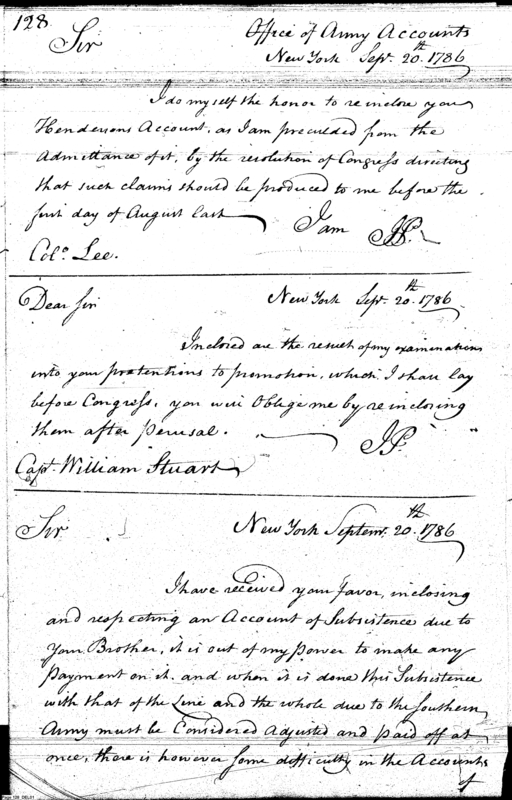 128
Office of Army Accounts
Sir
New York Sepr. 20.th 1786
I do myself the honor to reinclose you
Hendersons Account, as I am precluded from the
Admittance of it, by the resolution of Congress directing
that such claims should be produced to me before the
first day of August last
I am JP.
Colo. Lee.
Dear Sir New York Sepr. 20.th 1786
Inclosed are the result of my examinations
into your pretentions to promotion, which I shall lay
before Congress, you will Oblige me by reinclosing
them after perusal.
JP.
Capt. William Stuart
Sir New York Septemr. 20.th 1786
I have received your Favor, inclosing
and respecting an Account of Subsistence due to
Your Brother, it is out of my power to make any
Payment on it. and when it is done this Subsistence
with that of the Line and the whole due to the Southern
Army must be Considered Adjusted and paid off at
once, there is however some difficulty in the Accounts
of